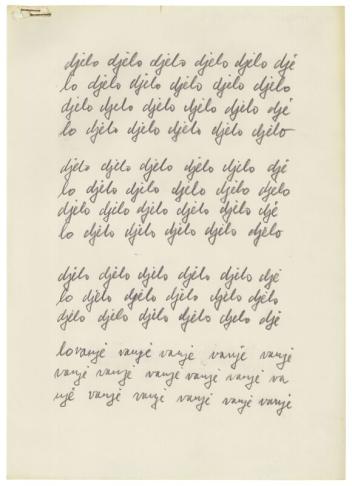 djelo djelo djelo djelo djelo djè
lo djèlo djèlo djèlo djèlo djèlo
djèlo djèlo djèlo djèlo djèlo djè
lo djèlo djèlo djèlo djèlo djèlo
djèlo djèlo djèlo djèlo djèlo djè
lo djèlo djèlo djèlo djèlo djèlo
djèlo djèlo djèlo djèlo djèlo djè
lo djèlo djèlo djèlo djèlo djèlo
djèlo djèlo djèlo djèlo djèlo djè
lo djèlo djèlo djèlo djèlo djèlo
djèlo djèlo djèlo djèlo djelo djè
lovanjè vanjè vanjè vanjè vanjè
vanjè vanjè vanjè vanjè vanjè va
njè vanjè vanjè vanjè vanjè vanjè